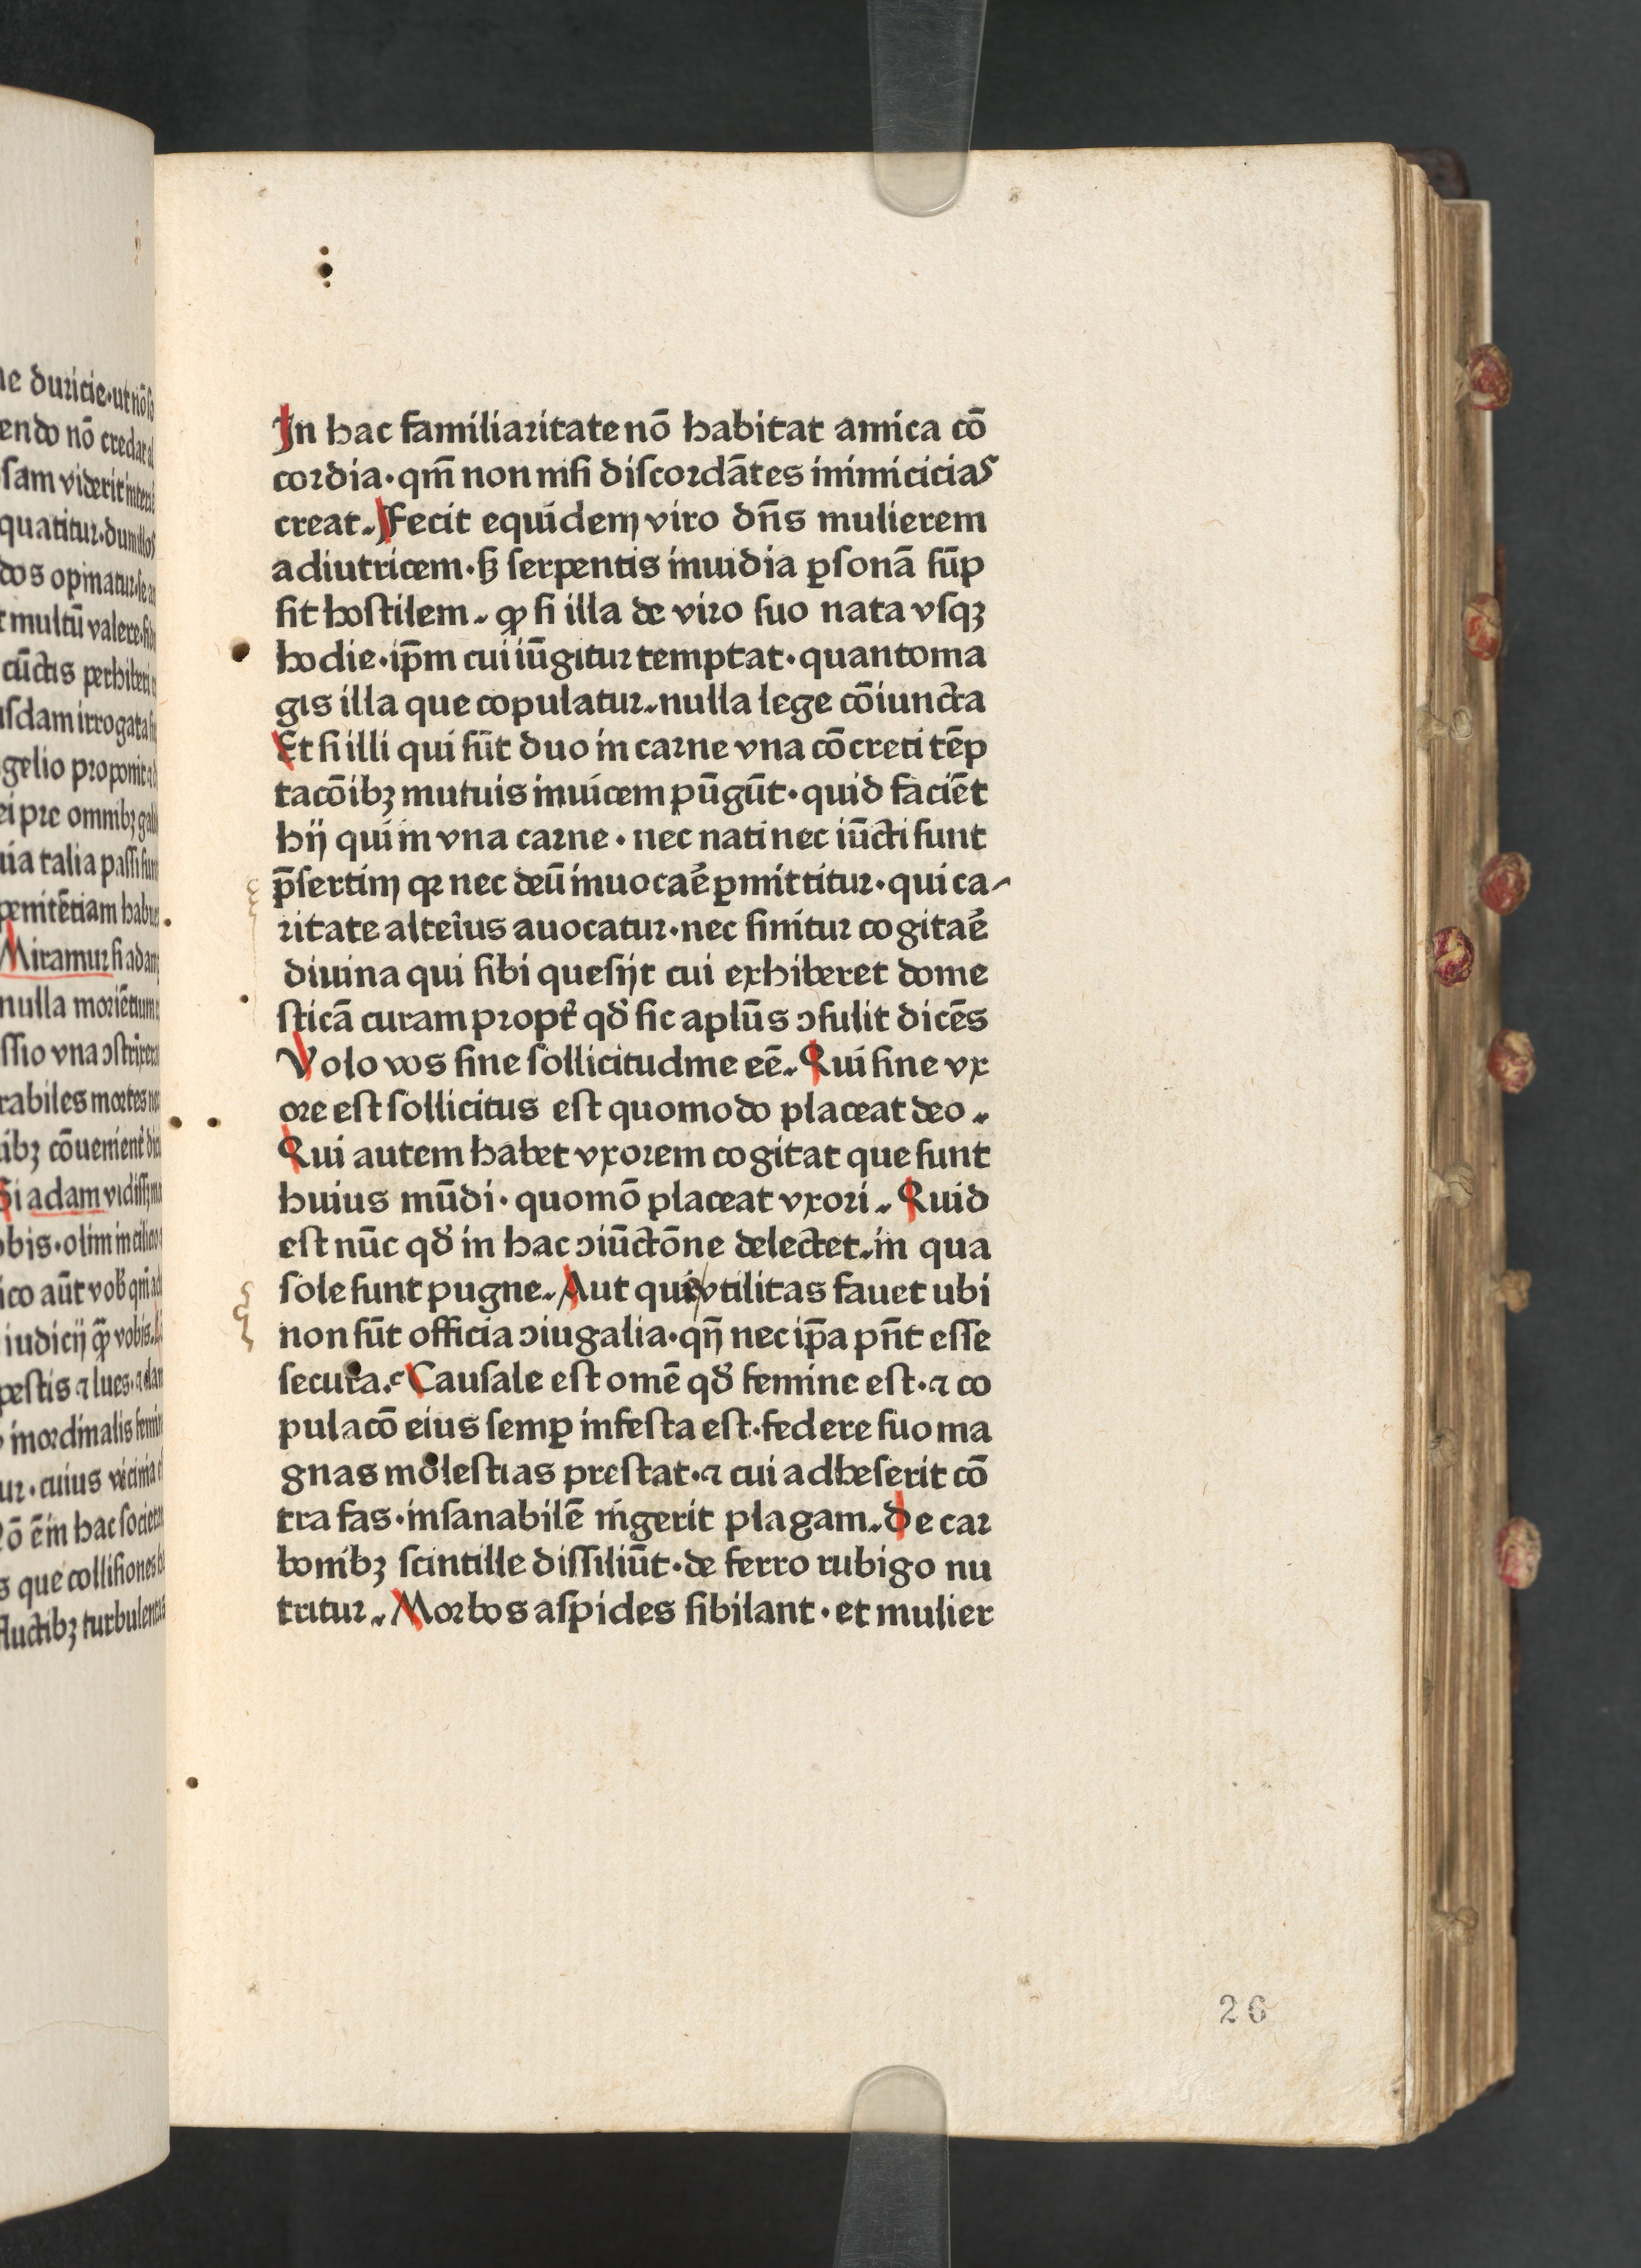 ne duricie·ut nō so
endo nō credat al
sam viderit intera
quatitur·dum illos
dos opinatur·se an
t multū valere·
cūctis perhiberi
usdam irrogata
gelio proponit
ei pre omnibꝫ
uia talia passi sunt
penitētiam habu
Miramur si adam
nulla moriētium
ssio vna ↄstrixera
rabiles mortes
ibꝫ cōuenient
Si adam vidiss
obis·olim in cilicio
ico aūt vob
iudicij qꝫ vobis·
pestis ⁊ lues·⁊ clam
inordinalis femin
ur·cuius vicima
Nō em̄ hac societa
s que collisiones
fluctibꝫ turbulentas
In hac familiaritate nō habitat amica cō
cordia·qm̄ non nisi discordātes inimicicias
creat. Fecit equidem viro dn̄s mulierem
adiutricem·sꝫ serpentis inuidia ꝑsonā sūp
sit hostilem. ꝙ si illa de viro suo nata vsqꝫ
hodie·ip̄m cui iūgitur temptat·quanto ma
gis illa que copulatur. nulla lege cōiuncta
Et si illi qui sūt duo in carne vna cōcreti tēp
tacōibꝫ mutuis inuicem pūgūt·quid faciēt
hij qui in vna carne·nec nati nec iūcti sunt
p̄sertim qꝛ nec deū inuocaē ꝑmittitur·qui ca-
ritate alteĩus auocatur·nec sinitur cogitaē
diuina qui sibi quesijt cui exhiberet dome
sticā curam propt̄ qd̄ sic aplūs ↄsulit dicēs
Volo vos sine sollicitudine eē. Qui sine vx
ore est sollicitus est quomodo placeat deo.
Qui autem habet vxorem cogitat que sunt
huius mūdi·quomō placeat vxori. Quid
est nūc qd̄ in hac ↄiūctōne delectet. in qua
sole sunt pugne. Aut quis vtilitas fauet ubi
non sūt officia ↄiugalia·qn̄ nec ip̄a pn̄t esse
secura. Causale est omē qd̄ femine est·⁊ co
pulacō eius semꝑ infesta est·federe suo ma
gnas molestias prestat·⁊ cui adheserit cō
tra fas·insanabilē ingerit plagam. de car
bonibꝫ scintille dissiliūt·de ferro rubigo nu
tritur. Morbos aspides sibilant·et mulier
26